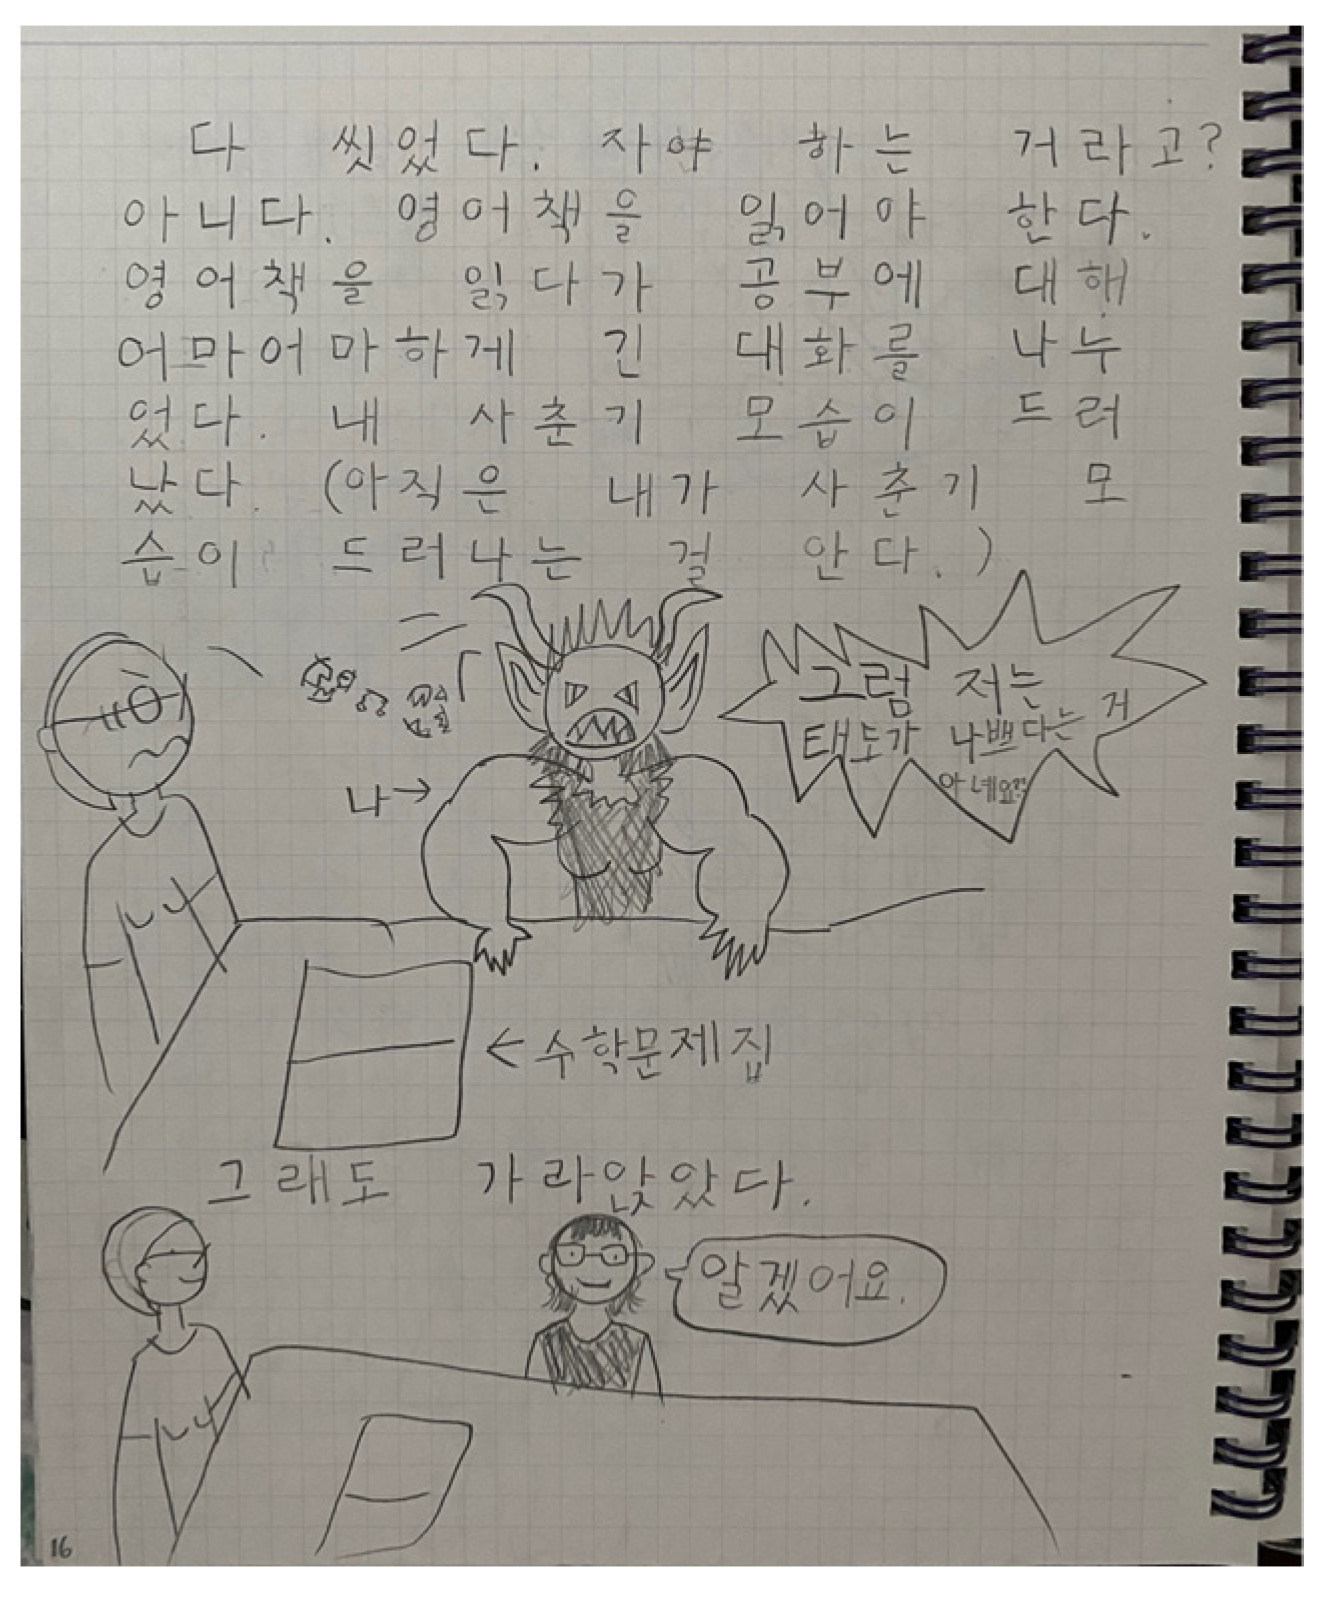 다 씻었다. 자야 하는 거라고?
아니다. 영어책을 읽어야 한다.
영어책을 읽다가 공부에 대해
어마어마하게 긴 대화를 나누
었다. 내 사춘기 모습이 드러
났다. (아직은 내가 사춘기 모
습이 드러나는 걸 안다.)
그럼 저는
태도가 나쁘다는 거
아네요??
나→
←수학문제집
그래도 가라앉았다.
알겠어요.
16